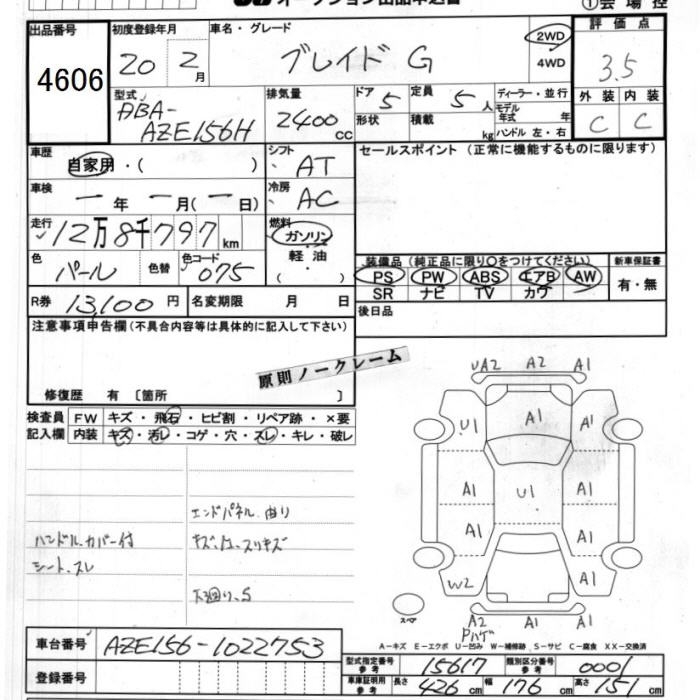 オークション出品申込書
①会場控
出品番号
4606
初度登録年月
20 2月
車名・グレード
ブレイド G
2WD
4WD
評価点
3.5
外装 内装
C C
型式
ABA-
AZE156H
排気量
2400 cc
ドア 5
定員 5人
形状
積載 kg
ディーラー・並行
モデル年式 年
ハンドル 左・右
車歴
自家用・( )
シフト
AT
セールスポイント (正常に機能するものに限ります)
車検
一年 一月(一日)
冷房
AC
走行
12万8千797km
燃料
ガソリン
軽油
( )
色
パール
色替
色コード
075
装備品 (純正品に限り○をつけてください)
PS PW ABS エアB AW
SR ナビ TV カワ
新車保証書
有・無
R券 13,100円
名変期限 月 日
後日品
注意事項申告欄(不具合内容等は具体的に記入して下さい)
原則ノークレーム
修復歴 有 〔箇所 〕
検査員記入欄
FW キズ・飛石・ヒビ割・リペア跡・×要
内装 キズ・汚レ・コゲ・穴・スレ・キレ・破レ
エンドパネル. 曲り
ハンドル カバー付
シート. スレ
下廻り、S
UA2 A2 A1
U1 A1 A1
A1 U1 A1
A1 A1
W2 A1
A2 A1 A1
Pハゲ
スペア
A－キズ E－エクボ U－凹み W－補修跡 S－サビ C－腐食 XX－交換済
車台番号
AZE156-1022753
登録番号
型式指定番号 参考 15617
類別区分番号 参考 0001
車庫証明用 参考 長さ 426cm 幅 176cm 高さ 151cm